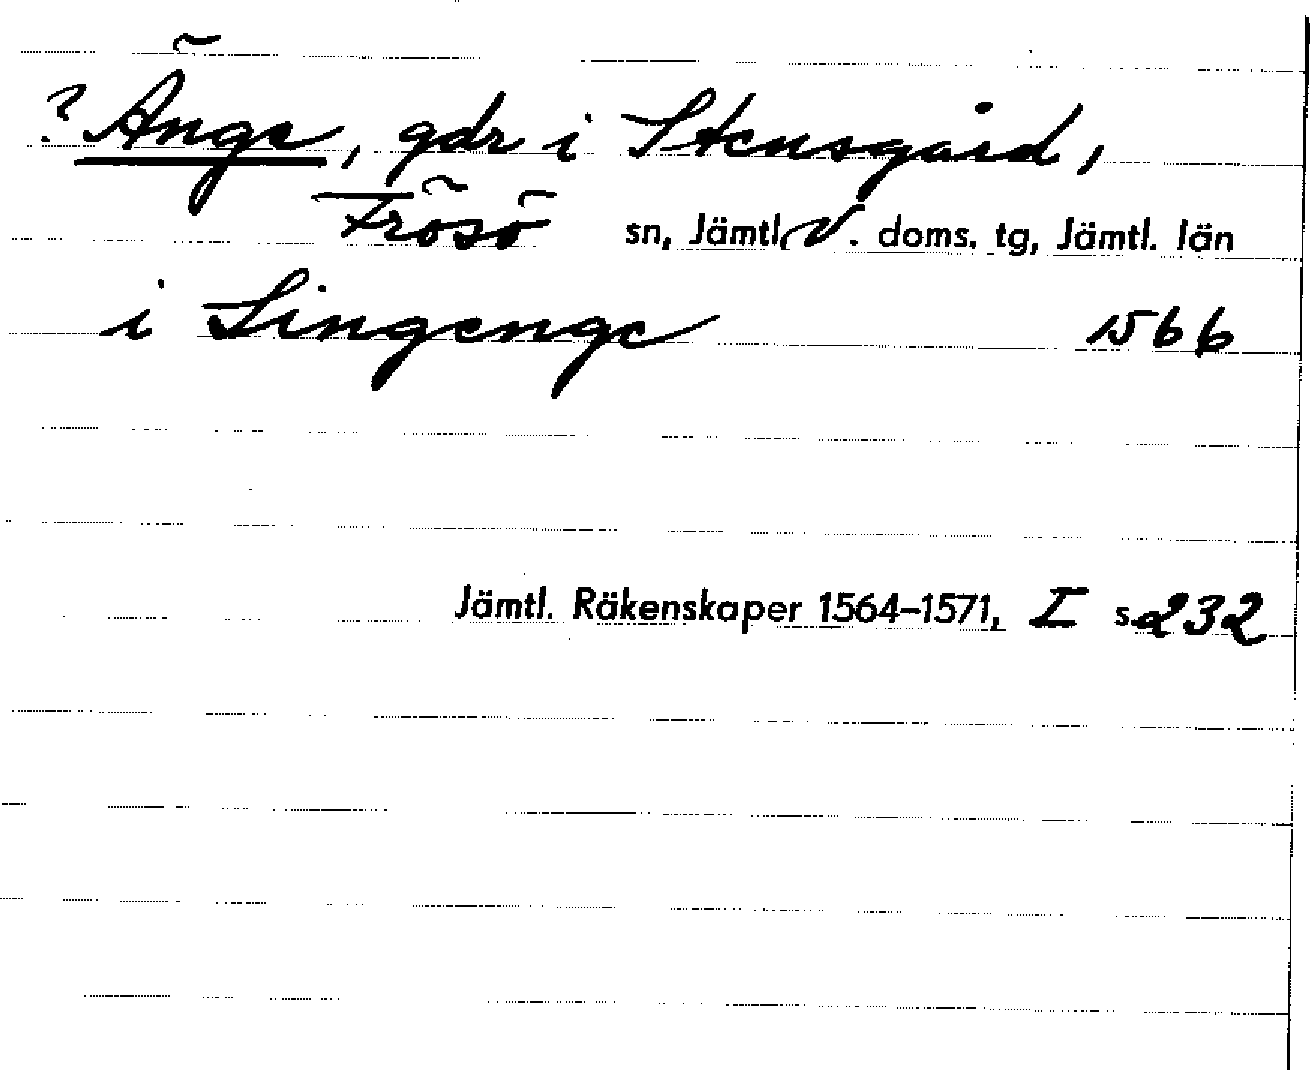 ? Änge, gdr i Stensgård,
Frösö sn, Jämtl. V. doms. tg, Jämtl. län
i Lingenge 1566
Jämtl. Räkenskaper 1564–1571, I s. 232